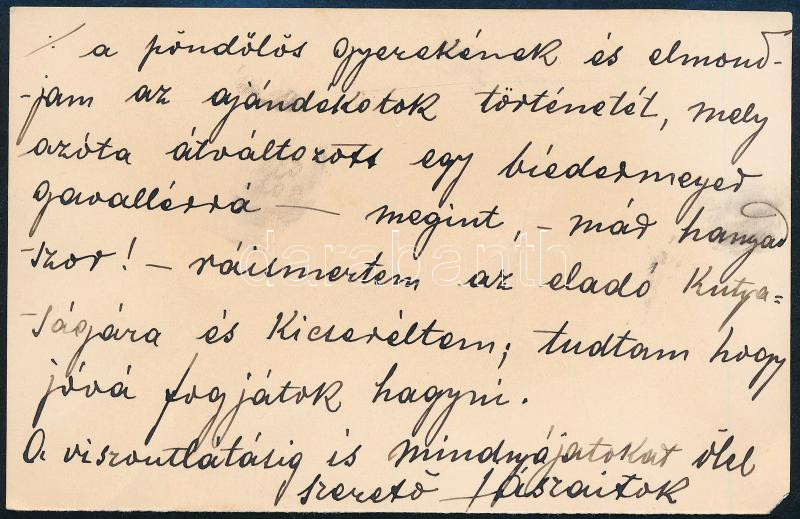 ./. a pöndölös gyerekének és elmond-
-jam az ajándékotok történetét, mely
azóta átváltozott egy biedermeyer
gavallérrá — megint, - már hanyad
-szor! - ráismertem az eladó kutya-
-ságára és kicseréltem; tudtam hogy
jóvá fogjátok hagyni.
A viszontlátásig is mindnyájatokat ölel
szerető
darabanth